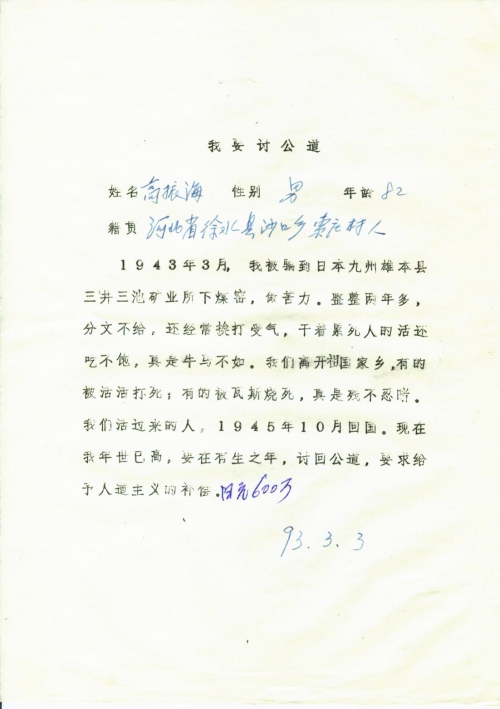 我要讨公道
姓名 高振海 性别 男 年龄 82
籍贯 河北省徐水县沙口乡索庄村人
1943年3月,我被骗到日本九州雄本县
三井三池矿业所下煤窑,做苦力。整整两年多,
分文不给,还经常挨打受气,干着累死人的活还
吃不饱,真是牛马不如。我们离开祖国家乡,有的
被活活打死;有的被瓦斯烧死,真是残不忍睹。
我们活过来的人。1945年10月回国。现在
我年世已高,要在有生之年,讨回公道,要求给
予人道主义的补偿.日元600万
93.3.3